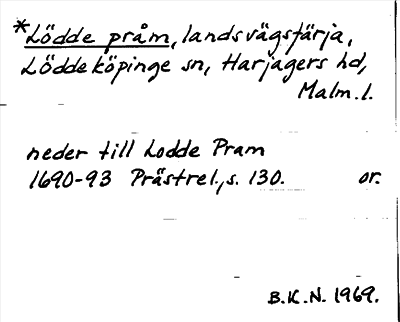 *Lödde pråm, landsvägsfärja,
Löddeköpinge sn, Harjagers hd,
Malm.l.
neder till Lodde Pram
1690-93 Prästrel., s. 130. or.
B.K.N. 1969.